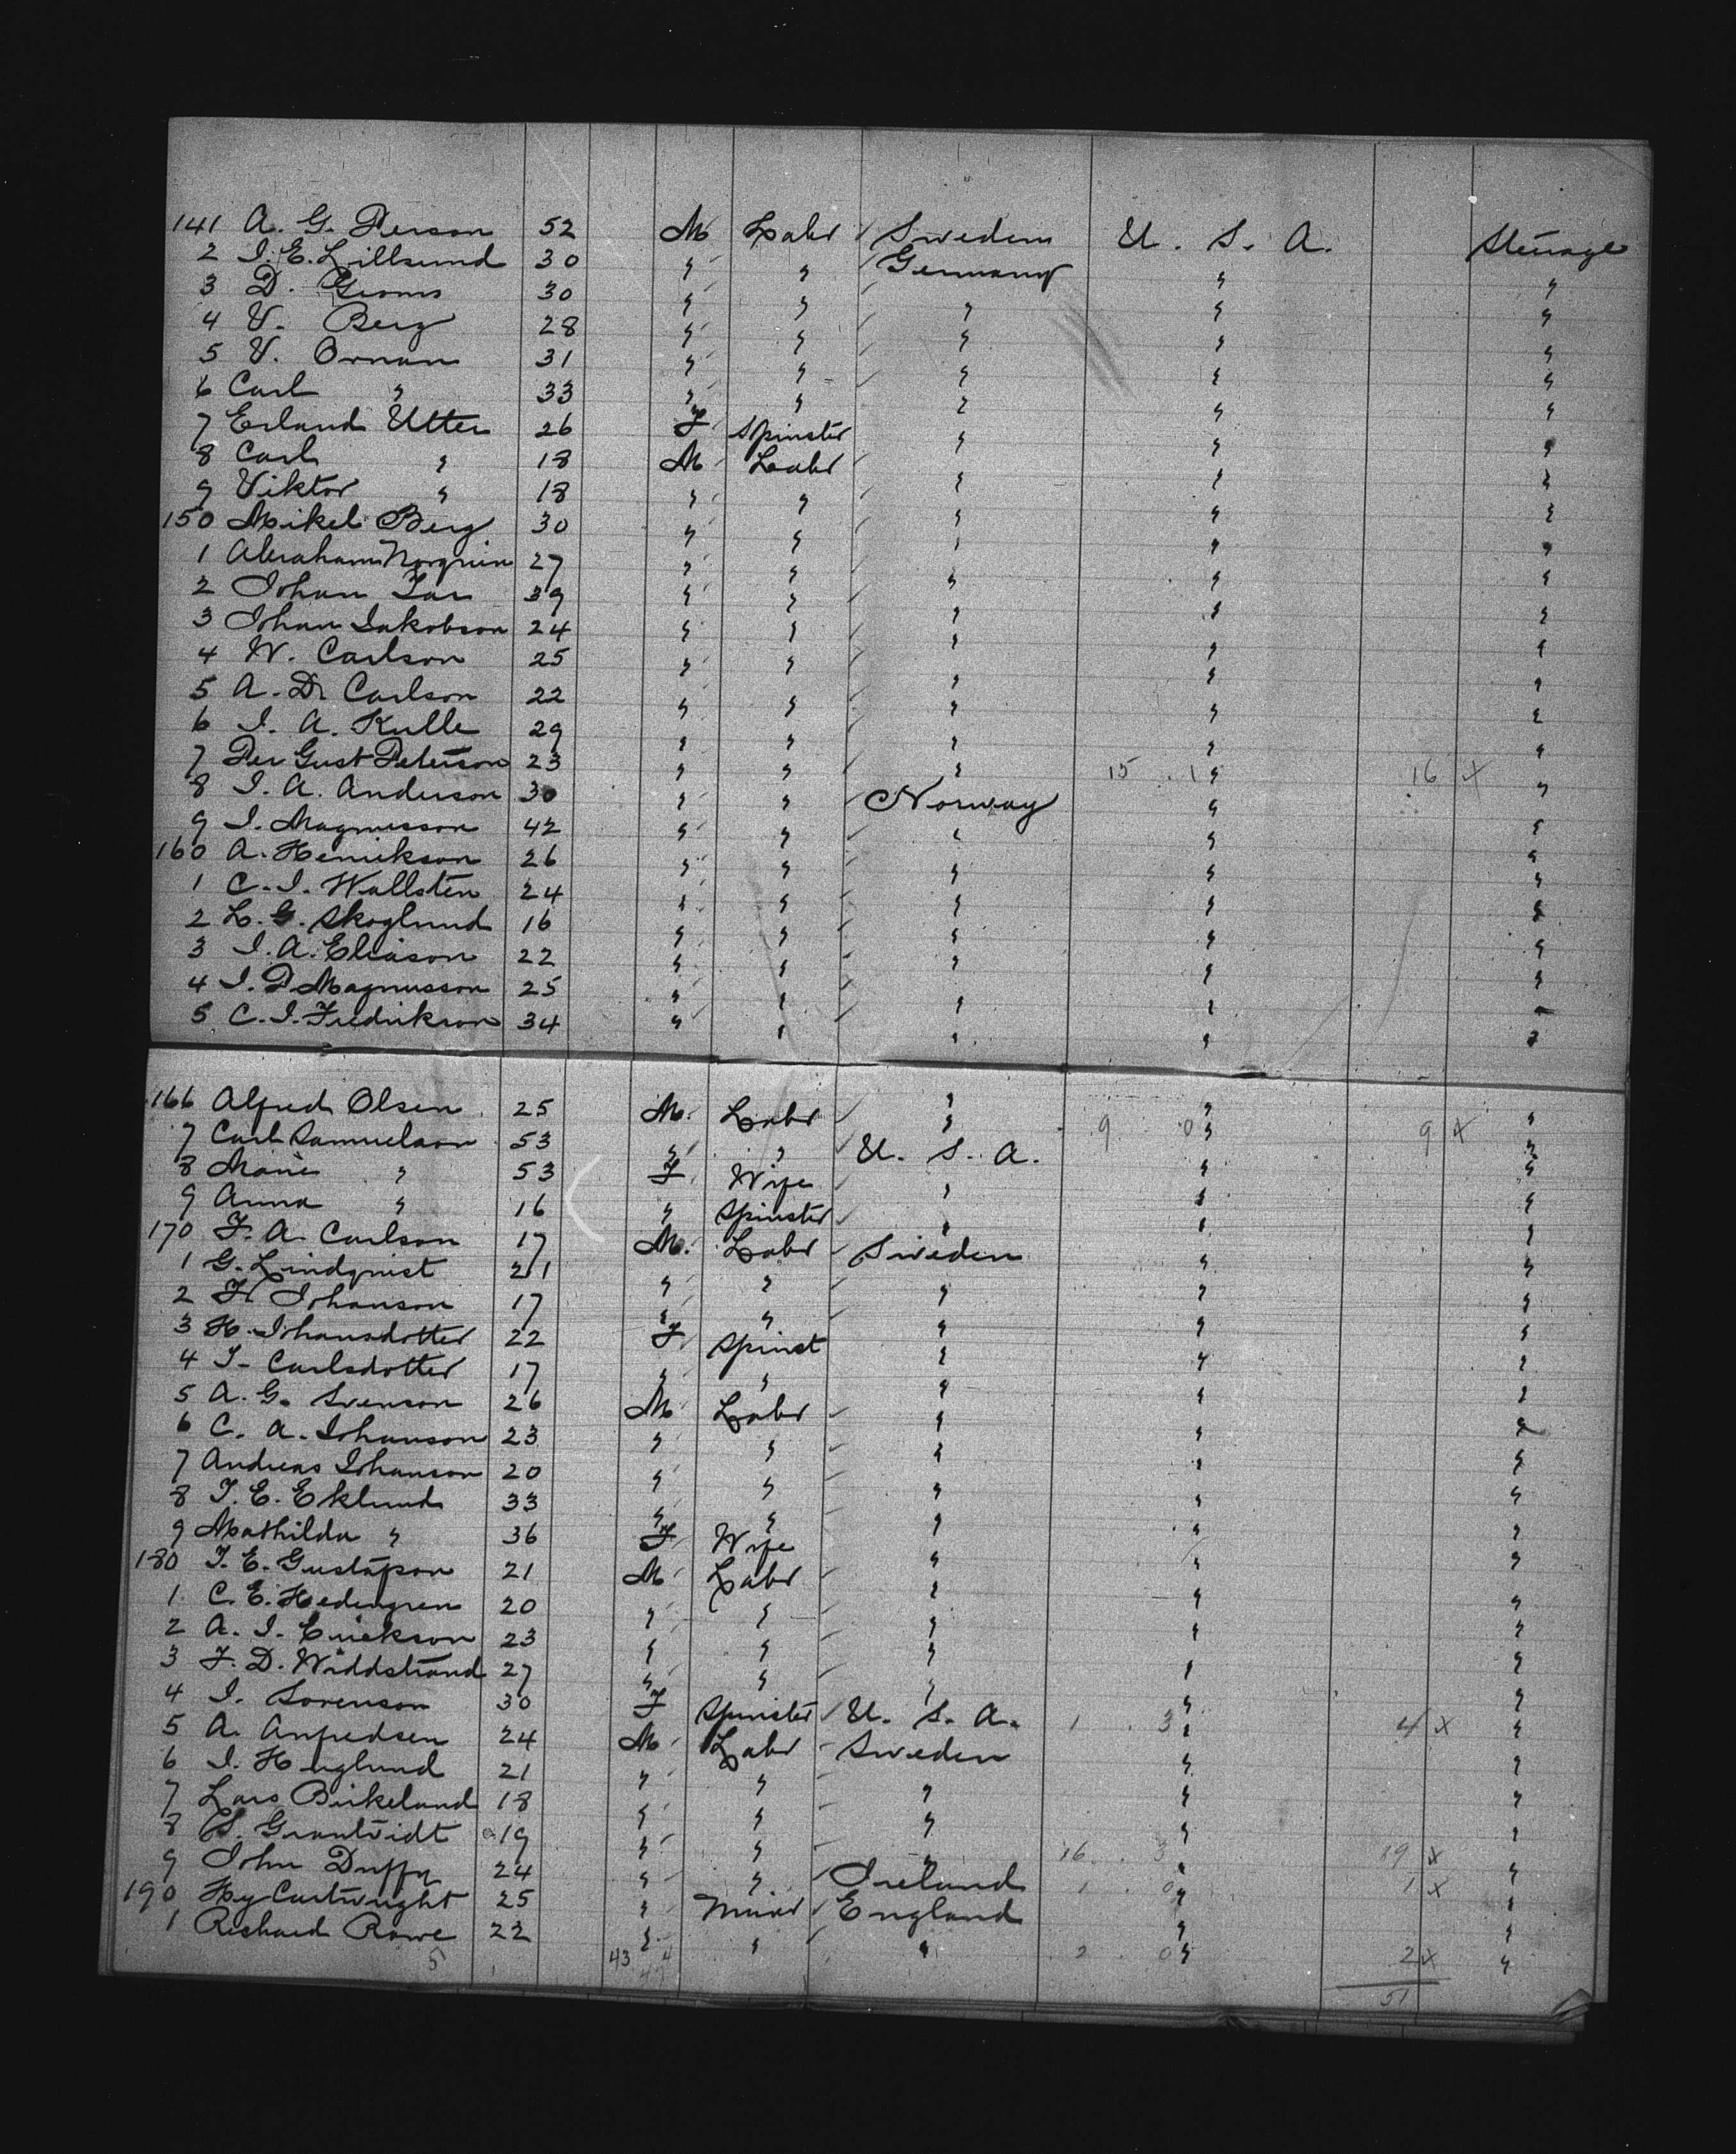 141 A. G. Person 52 M Labr Sweden U. S. A. Steerage
2 I. E. Lillsund 30 " " Germany " "
3 D. Groms 30 " " " " "
4 V. Berg 28 " " " " "
5 V. Orman 31 " " " " "
6 Carl " 33 " " " " "
7 Erland Utter 26 F Spinster " " "
8 Carl " 18 M Labr " " "
9 Viktor " 18 " " " " "
150 Mikel Berg 30 " " " " "
1 Abraham Norgrin 27 " " " " "
2 Johan Lar 39 " " " " "
3 Johan Jakobson 24 " " " " "
4 W. Carlson 25 " " " " "
5 A. D. Carlson 22 " " " " "
6 I. A. Kulle 29 " " " " "
7 Per Gust Peterson 23 " " " 15 1 " 16 x "
8 I. A. Anderson 30 " " Norway " "
9 I. Magnusson 42 " " " " "
160 A. Henrikson 26 " " " " "
1 C. I. Wallsten 24 " " " " "
2 L. G. Skoglund 16 " " " " "
3 I. A. Eliason 22 " " " " "
4 I. P. Magnusson 25 " " " " "
5 C. I. Fredrikson 34 " " " " "
166 Alfred Olsen 25 M. Labr " " "
7 Carl Samuelson 53 " " U. S. A. 9 0 " 9 x "
8 Marie " 53 F Wife " " "
9 Anna " 16 " Spinster " " "
170 F. A. Carlson 17 M. Labr Sweden " "
1 G. Lindqvist 21 " " " " "
2 H Johanson 17 " " " " "
3 H. Johansdotter 22 F Spinst " " "
4 T. Carlsdotter 17 " " " " "
5 A. G. Svenson 26 M Labr " " "
6 C. A. Johanson 23 " " " " "
7 Andreas Johanson 20 " " " " "
8 T. E. Eklund 33 " " " " "
9 Mathilda " 36 F Wife " " "
180 T. E. Gustafson 21 M Labr " " "
1 C. E. Hedengren 20 " " " " "
2 A. I. Erickson 23 " " " " "
3 F. D. Widdstrand 27 " " " " "
4 I. Sorenson 30 F Spinster U. S. A. 1 3 " 4 x "
5 A. Anfredsen 24 M Labr Sweden " "
6 I. Haglund 21 " " " " "
7 Lars Birkeland 18 " " " " "
8 Grantvidt 19 " " " 16 3 " 19 x "
9 John Duffy 24 " " Ireland 1 0 " 1 x "
190 Hy Cartwright 25 " Miner England " "
1 Richard Rowe 22 " " " 2 0 " 2 x "
5 1 43 4
47 51